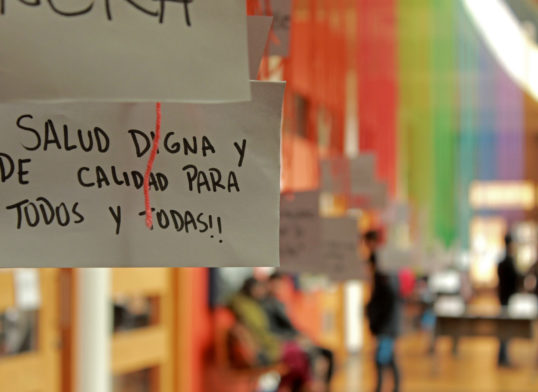 SALUD DIGNA Y
DE CALIDAD PARA
TODOS Y TODAS!!